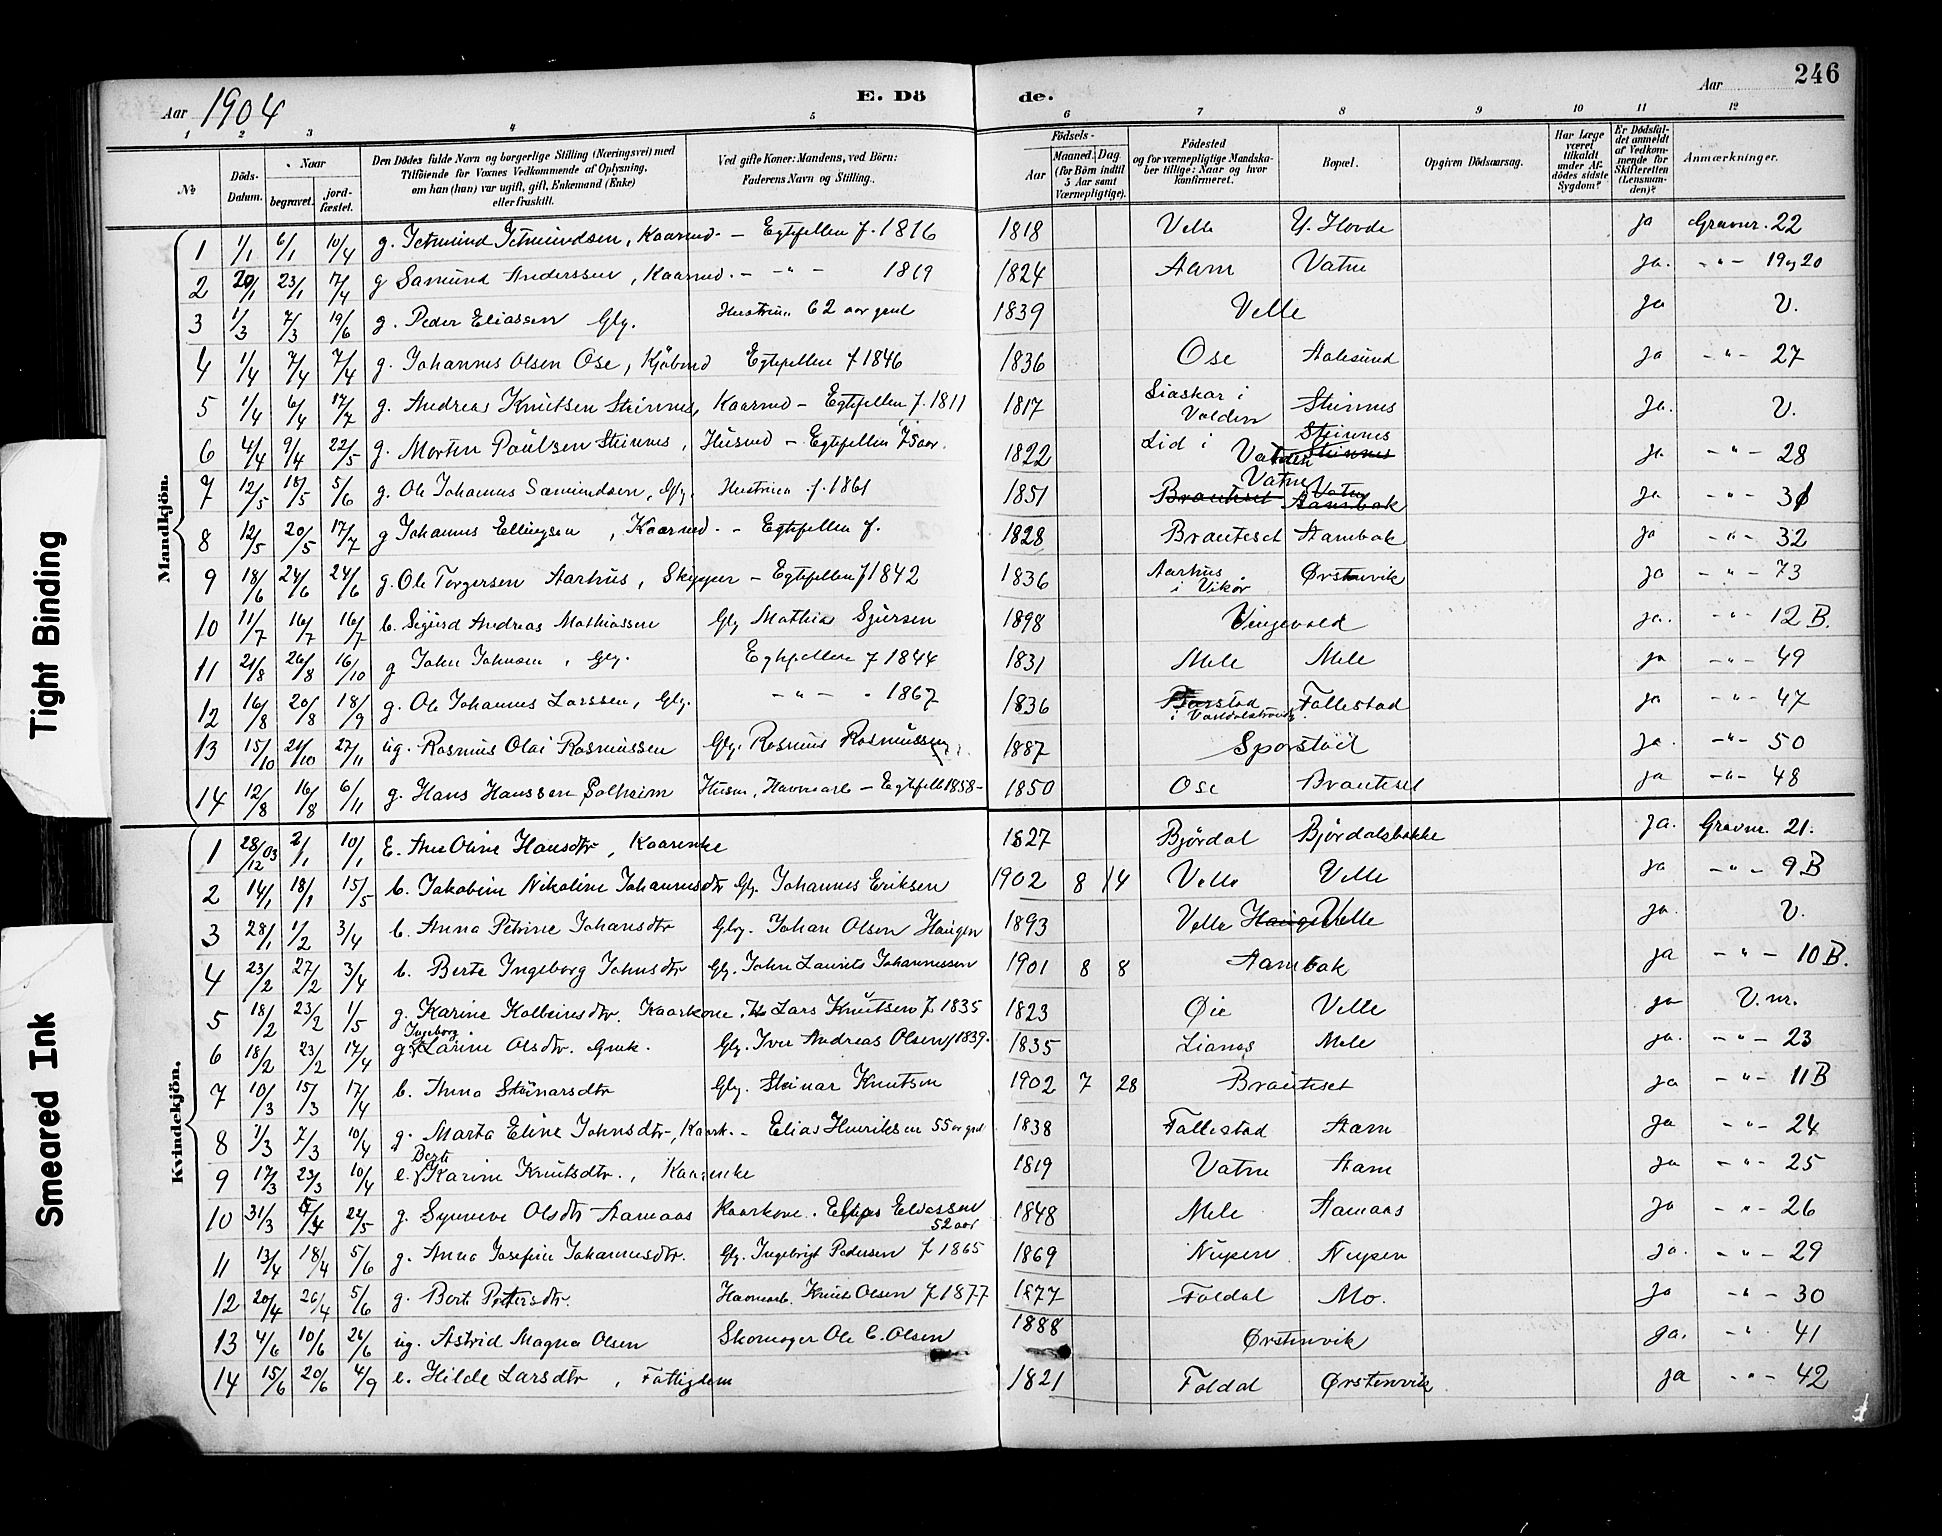 246
Aar 1904
E. Dö
de.
Aar
1 2 3 4 5 6 7 8 9 10 11 12
№
Döds-Datum.
Naar
begravet.
jord-fæstet.
Den Dödes fulde Navn og borgerlige Stilling (Næringsvei) med Tilföiende for Voxnes Vedkommende af Oplysning, om han (hun) var ugift, gift, Enkemand (Enke) eller fraskilt.
Ved gifte Koner: Mandens, ved Börn: Faderens Navn og Stilling.
Födsels-
Aar
Maaned. Dag
(for Börn indtil 5 Aar samt Værnepligtige).
Födested og for værnepligtige Mandskaber tillige: Naar og hvor konfirmeret.
Bopæl.
Opgiven Dödsaarsag.
Har Læge været tilkaldt under Afdödes sidste Sygdom?
Er Dödsfaldet anmeldt af Vedkommende for Skifteretten (Lensmanden)?
Anmærkninger.
Mandkjön.
1 1/1 6/1 10/4 g. Jetmund Jetmundsen, Kaarmd. – Egtefellen f. 1816 1818 Velle Y. Hovde ja Gravnr. 22
2 20/1 23/1 7/4 g Samund Anderssen, Kaarmd. – – " – 1819 1824 Aam Vatne ja. – " – 19 og 20
3 1/3 7/3 19/6 g. Peder Eliassen Glg. Hustruen 62 aar gml 1839 Velle ja V.
4 1/4 7/4 7/4 g. Johannes Olsen Ose, Kjöbmd Egtefellen f 1846 1836 Ose Aalesund ja – " – 27
5 1/4 6/4 17/7 g. Andreas Knutsen Steinnes, Kaarmd – Egtefellen f. 1811 1817 Siaskar i Volden Steinnes ja. V.
6 4/4 9/4 22/5 g. Morten Poulsen Steinnes, Husmd – Egtefellen 75 aar. 1822 Lid i Vatnen Steinnes Steinnes ja. – " – 28
7 12/5 18/5 5/6 g. Ole Johannes Samundsen, Glg. Hustruen f. 1861 1851 Brauteset Vatne Aambak Vatne ja – " – 31
8 12/5 20/5 17/7 g Johannes Ellingsen, Kaarmd. – Egtefellen f. 1828 Brauteset Aambak ja – " – 32
9 18/6 24/6 24/6 g. Ole Torgersen Aarhus, Skipper – Egtefellen f 1842 1836 Aarhus i Vikør Ørstenvik ja – " – 73
10 11/7 16/7 16/7 b. Sigurd Andreas Mathiassen Glg Mathias Sjursen 1898 Vingevold ja. – " – 12 B.
11 21/8 26/8 16/10 g John Johnsen, Glg. Egtefellen f 1844 1831 Mele Mele ja – " – 49
12 16/8 20/8 18/9 g. Ole Johannes Larssen, Glg. – " – " 1867 1836 Barstad i Vartdalstrand Follestad ja – " – 47
13 15/10 21/10 27/11 ug. Rasmus Olai Rasmussen Glg. Rasmus Rasmussen 1887 Sporstöil ja. – " – 50
14 12/8 16/8 6/11 g. Hans Hanssen Solheim Husm, Havnearb – Egtefelle 1858 – 1850 Ose Brauteset ja – " – 48
Kvindekjön.
1 28/12 03 2/1 10/1 E. Ane Oline Hansdtr, Kaarenke 1827 Bjórdal Bjórdalsbakke ja. Gravnr. 21.
2 14/1 18/1 15/5 b. Jakobine Nikoline Johannesdtr Glg. Johannes Eriksen 1902 8 14 Velle Velle ja – " – 9 B
3 28/1 1/2 3/4 b. Anna Petrine Johansdtr Glg. Johan Olsen Haugen 1893 Velle Haugen Velle ja. V.
4 23/2 27/2 3/4 b. Berte Ingeborg Johnsdtr Glg. John Laurits Johannessen 1901 8 8 Aambak ja – " – 10 B.
5 18/2 23/2 1/5 g. Karine Kolbeinsdtr. Kaarkone, Lars Knutsen f. 1835 1823 Øie Velle ja V. nr.
6 18/2 23/2 17/4 g. Ingeborg Larine Olsdtr. Gmk. Glg. Iver Andreas Olsen f 1839. 1835 Lianes Mele ja. – " – 23
7 10/3 15/3 17/4 b. Anna Steinarsdtr Glg. Steinar Knutsen 1902 7 28 Brauteset ja – " – 11 B
8 1/3 7/3 10/4 g. Marta Eline Johnsdtr, Kaark. – Elias Henriksen 55 aar gml 1838 Follestad Aam ja – " – 24
9 17/3 23/3 10/4 e. Berte Karine Knutsdtr., Kaarenke 1819 Vatne Aam ja – " – 25
10 31/3 5/4 22/5 g. Synneve Olsdtr Aamaas Kaarkone. Elias Eliassen 52 aar 1848 Mele Aamaas ja – " – 26
11 13/4 18/4 5/6 g. Anna Josefine Johannesdtr. Glg. Ingebrigt Pedersen f. 1865 1869 Nupen Nupen ja. – " – 29
12 20/4 26/4 5/6 g. Berte Pettersdtr. Havnearb. Knut Olsen f 1877 1877 Foldal Mo. ja – " – 30
13 4/6 10/6 26/6 ug. Astrid Magna Olsen Skomager Ole C. Olsen 1888 Ørstenvik ja. – " 41
14 15/6 20/6 4/9 e. Hilde Larsdtr, Fattiglem 1821 Foldal Ørstenvik ja – " – 42
Tight Binding
Smeared Ink